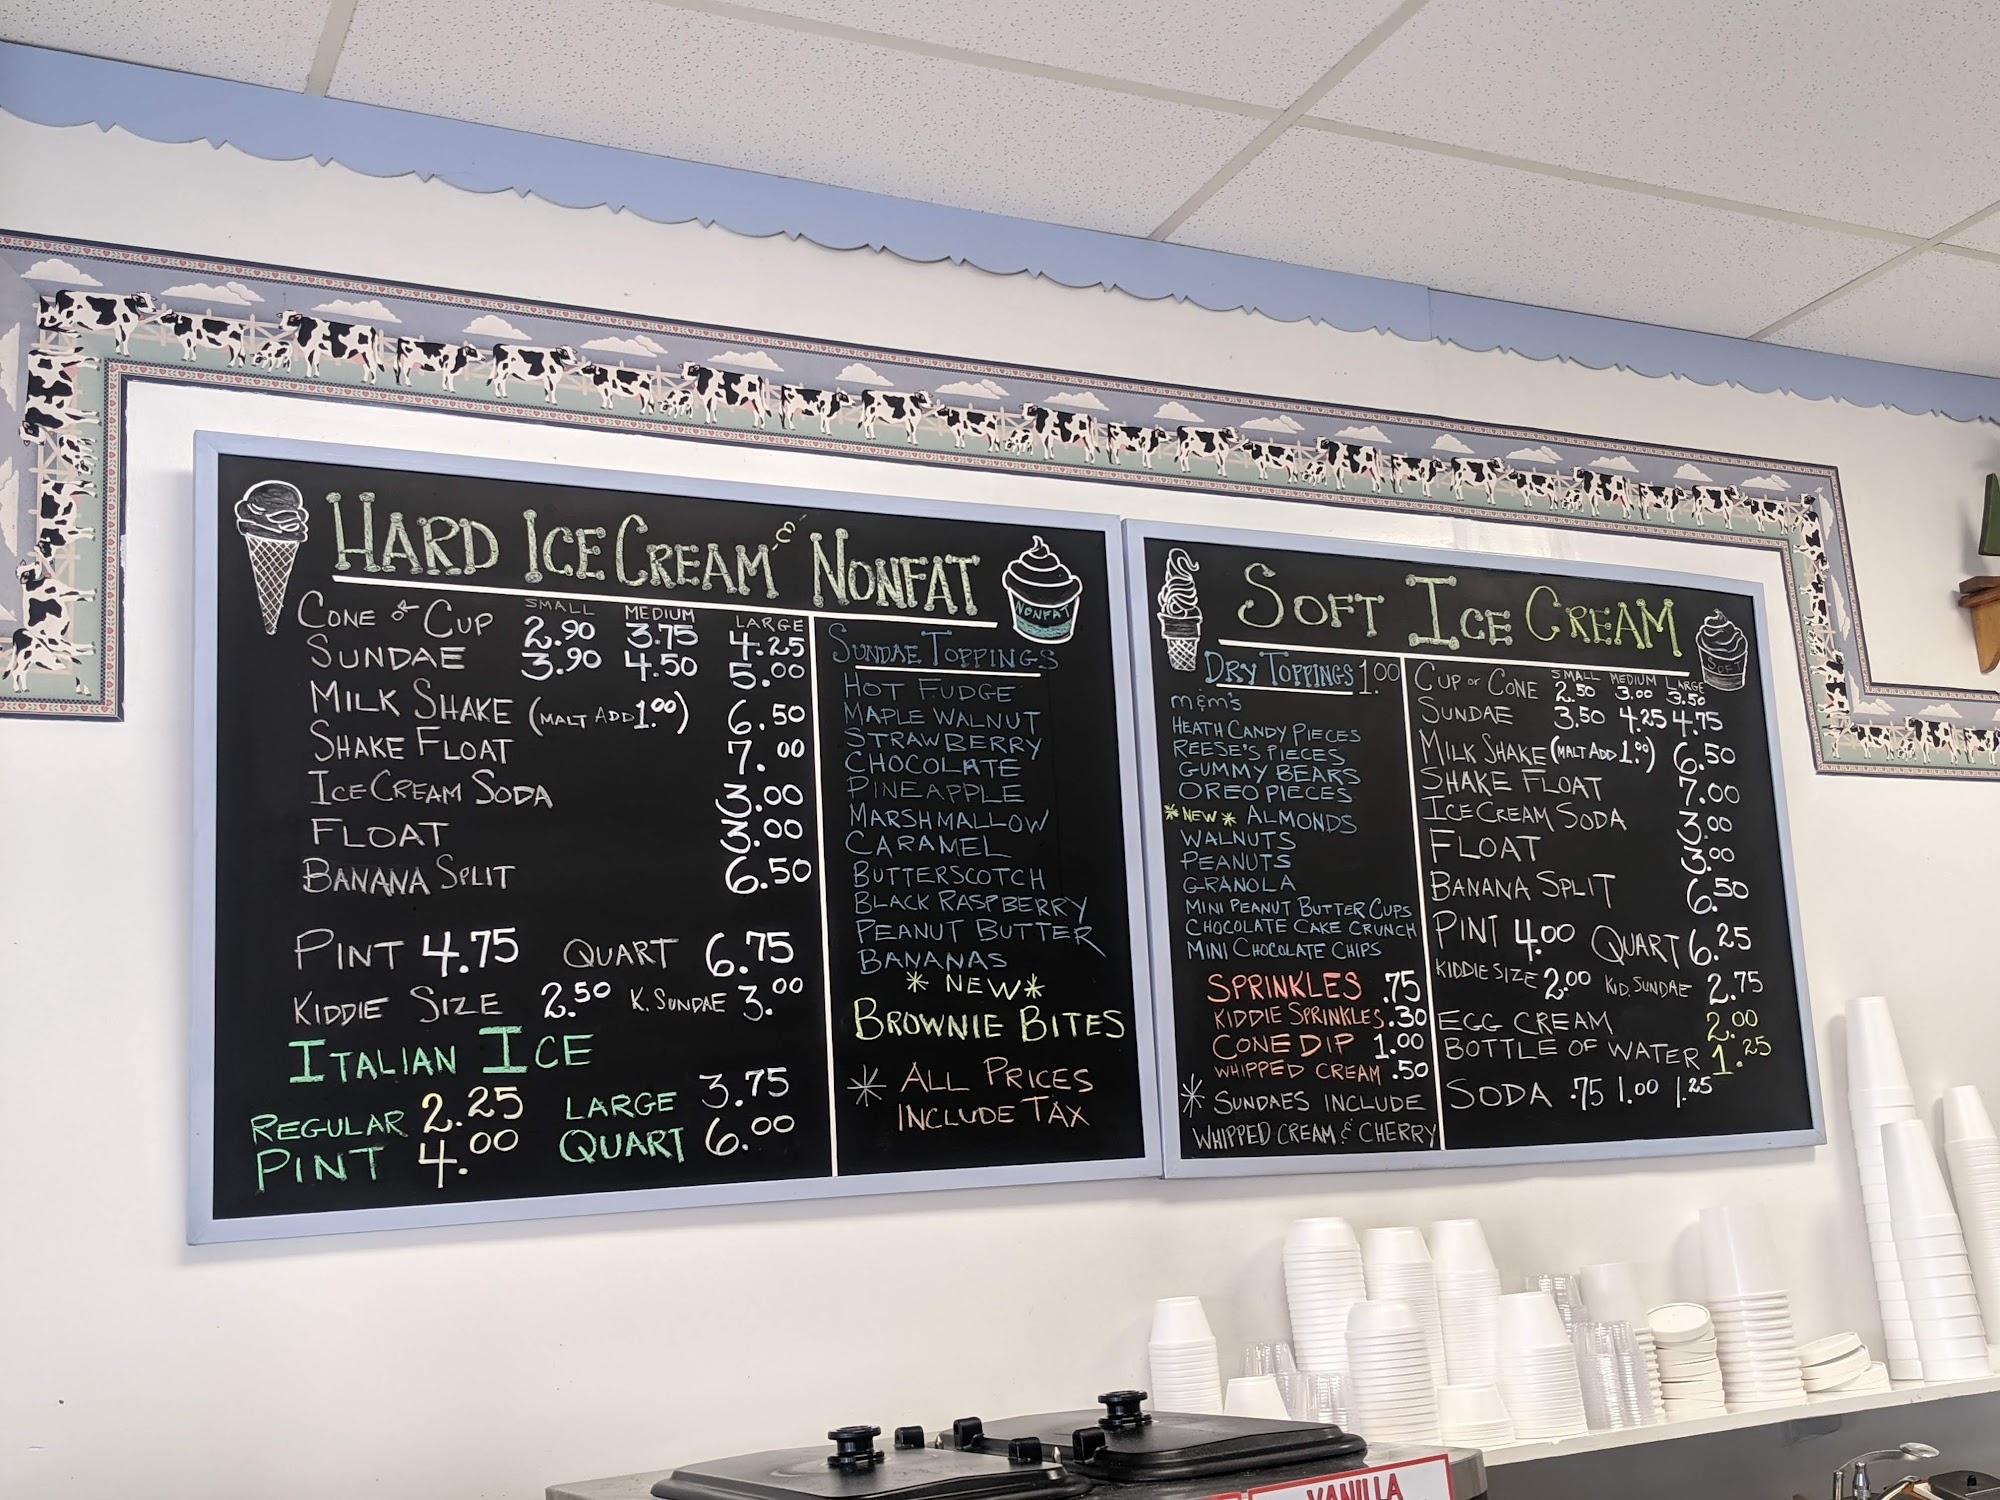 HARD ICE CREAM & NONFAT
NONFAT
SMALL MEDIUM LARGE
CONE or CUP 2.90 3.75 4.25
SUNDAE 3.90 4.50 5.00
MILK SHAKE (MALT ADD 1.00) 6.50
SHAKE FLOAT 7.00
ICE CREAM SODA 3.00
FLOAT 3.00
BANANA SPLIT 6.50
PINT 4.75 QUART 6.75
KIDDIE SIZE 2.50 K. SUNDAE 3.00
ITALIAN ICE
REGULAR 2.25 LARGE 3.75
PINT 4.00 QUART 6.00
SUNDAE TOPPINGS
HOT FUDGE
MAPLE WALNUT
STRAWBERRY
CHOCOLATE
PINEAPPLE
MARSHMALLOW
CARAMEL
BUTTERSCOTCH
BLACK RASPBERRY
PEANUT BUTTER
BANANAS
* NEW *
BROWNIE BITES
* ALL PRICES
INCLUDE TAX
SOFT ICE CREAM
SOFT
DRY TOPPINGS 1.00
m&m's
HEATH CANDY PIECES
REESE'S PIECES
GUMMY BEARS
OREO PIECES
*NEW* ALMONDS
WALNUTS
PEANUTS
GRANOLA
MINI PEANUT BUTTER CUPS
CHOCOLATE CAKE CRUNCH
MINI CHOCOLATE CHIPS
SPRINKLES .75
KIDDIE SPRINKLES .30
CONE DIP 1.00
WHIPPED CREAM .50
* SUNDAES INCLUDE
WHIPPED CREAM & CHERRY
SMALL MEDIUM LARGE
CUP or CONE 2.50 3.00 3.50
SUNDAE 3.50 4.25 4.75
MILK SHAKE (MALT ADD 1.00) 6.50
SHAKE FLOAT 7.00
ICE CREAM SODA 3.00
FLOAT 3.00
BANANA SPLIT 6.50
PINT 4.00 QUART 6.25
KIDDIE SIZE 2.00 KID. SUNDAE 2.75
EGG CREAM 2.00
BOTTLE OF WATER 1.25
SODA .75 1.00 1.25
VANILLA